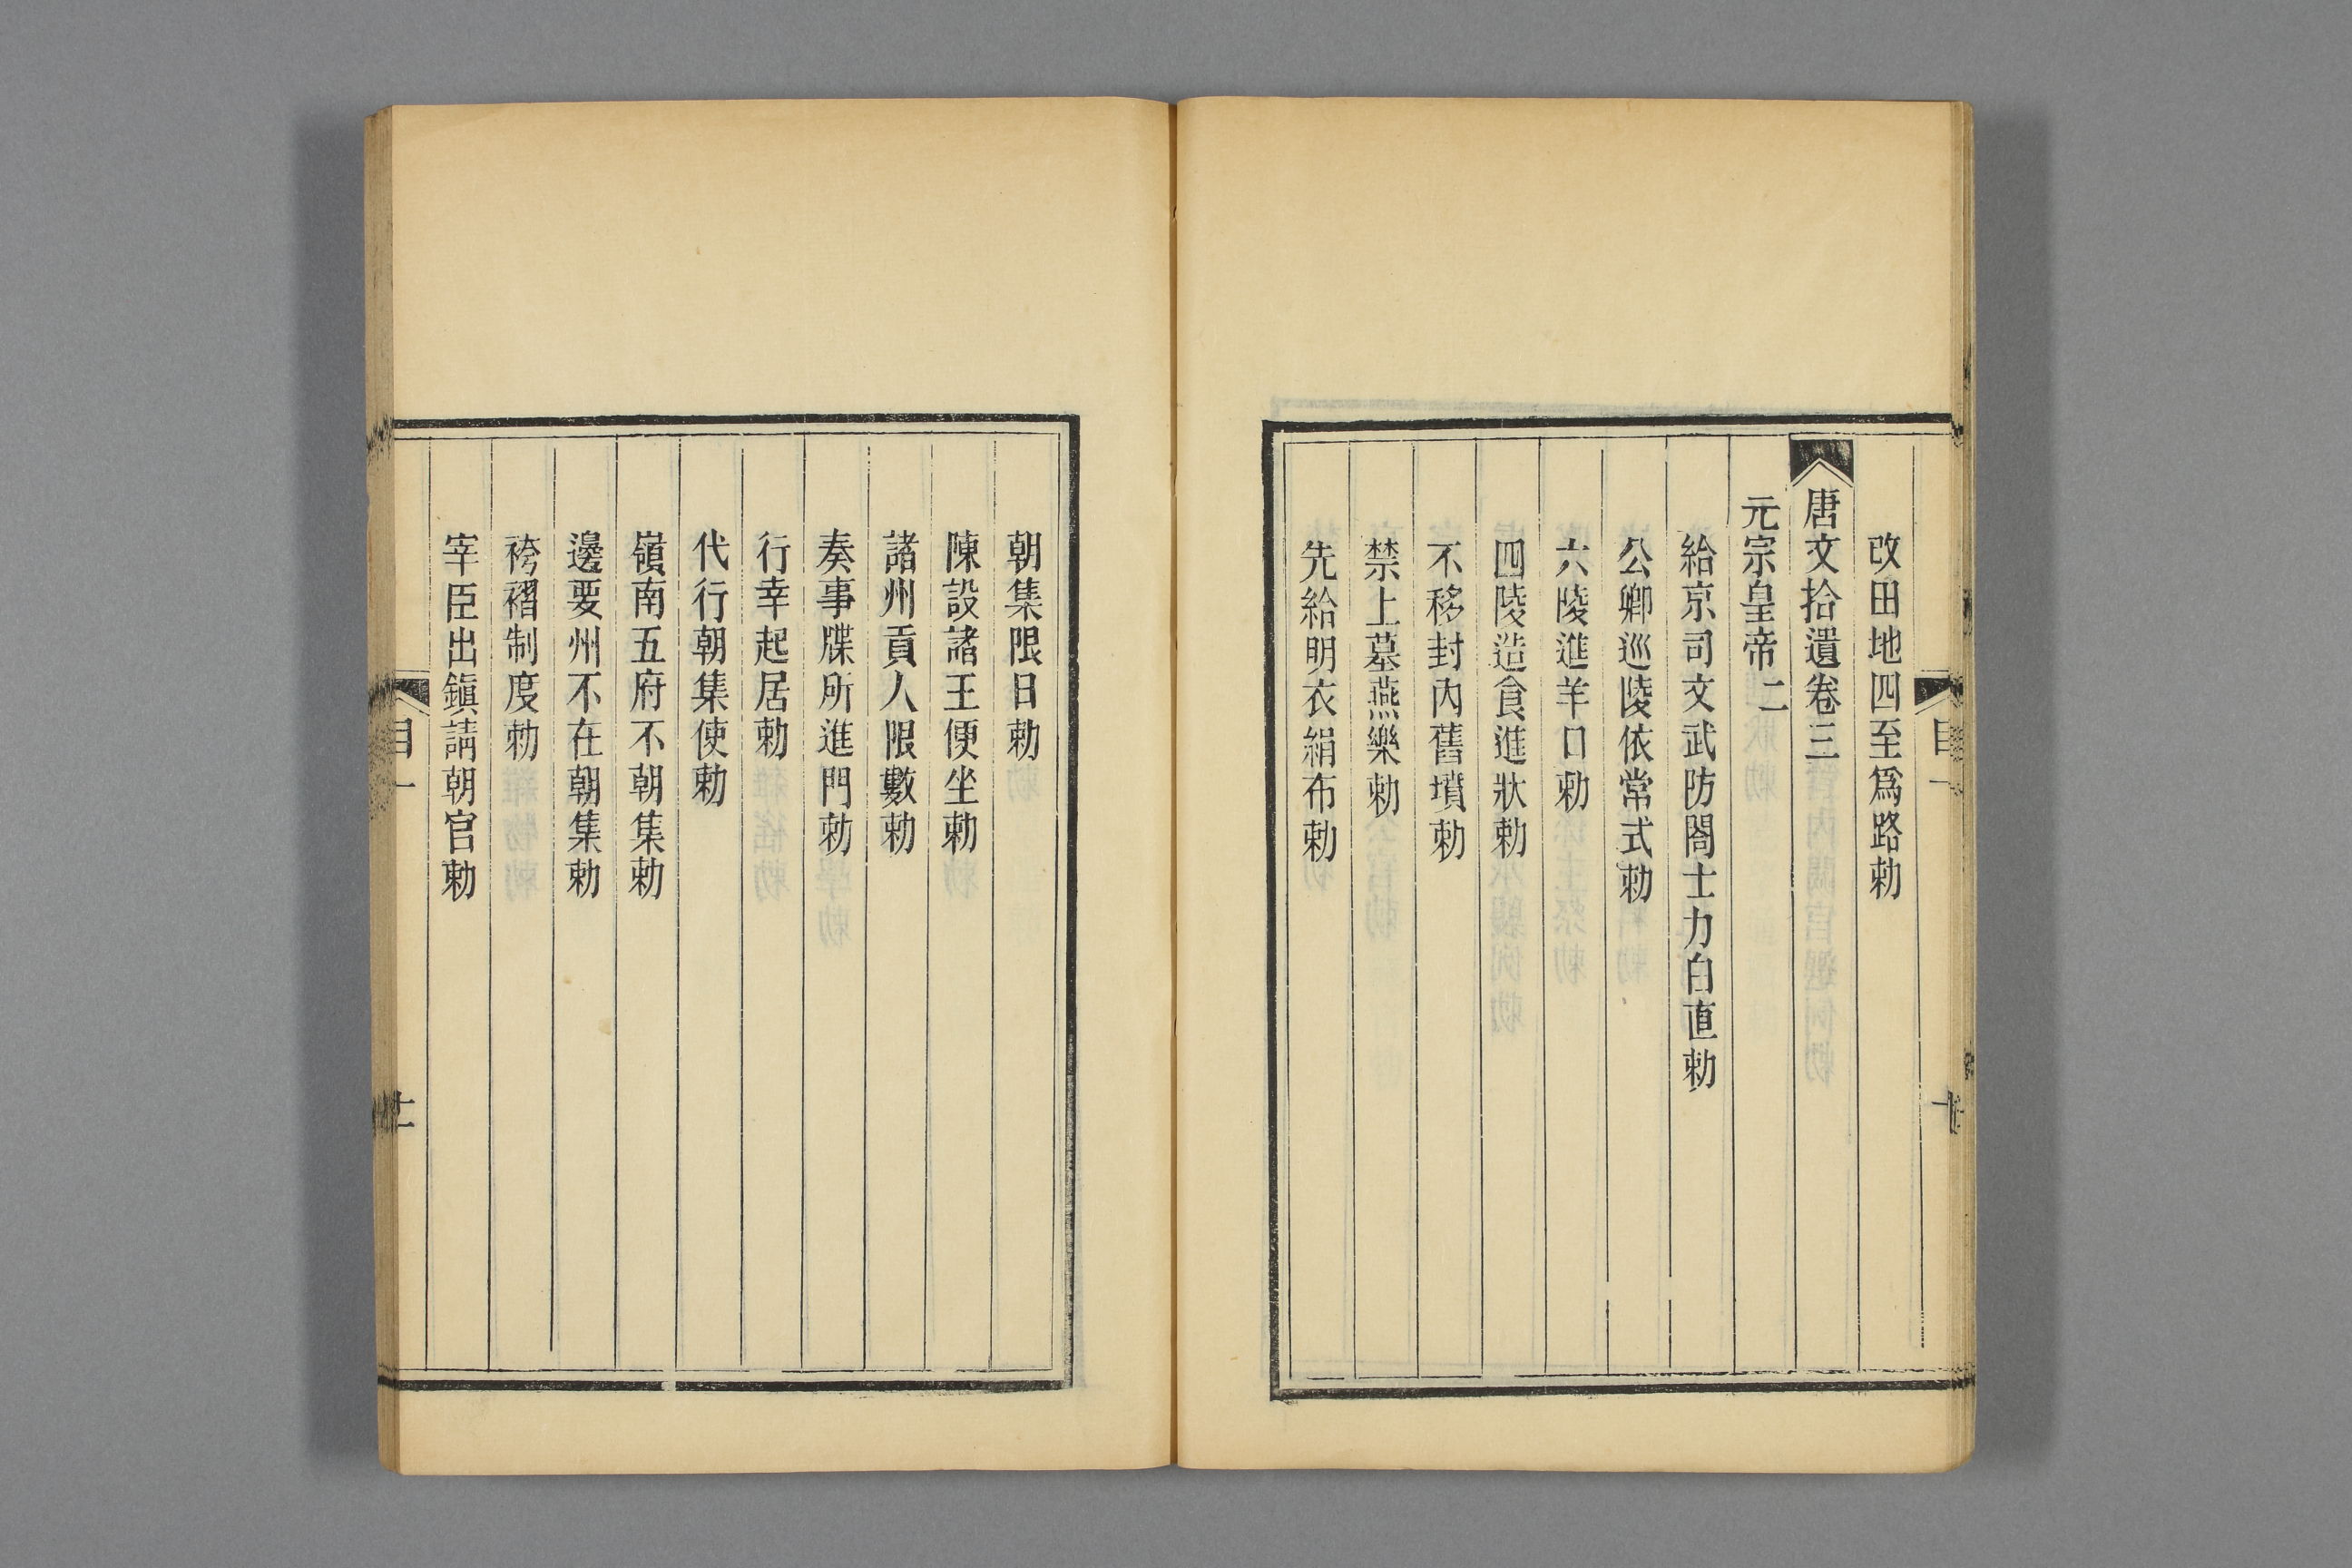 改田地四至爲路勅
唐文拾遺卷三
元宗皇帝二
給京司文武防閤士力白直勅
公卿巡陵依常式勅
六陵進羊口勅
四陵造食進狀勅
不移封內舊墳勅
禁上墓燕樂勅
先給明衣絹布勅
朝集限日勅
陳設諸王便坐勅
諸州貢人限數勅
奏事牒所進門勅
行幸起居勅
代行朝集使勅
嶺南五府不朝集勅
邊要州不在朝集勅
袴褶制度勅
宰臣出鎭請朝官勅
目一